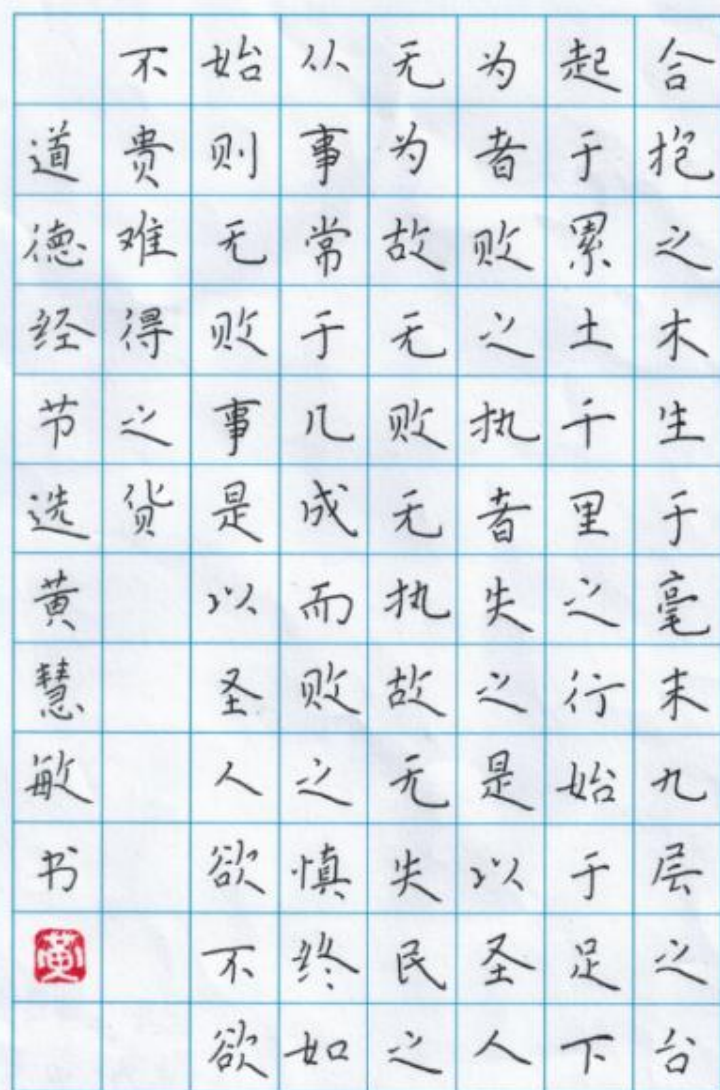 合抱之木生于毫末九层之台
起于累土千里之行始于足下
为者败之执者失之是以圣人
无为故无败无执故无失民之
从事常于几成而败之慎终如
始则无败事是以圣人欲不欲
不贵难得之货
道德经节选黄慧敏书
黄